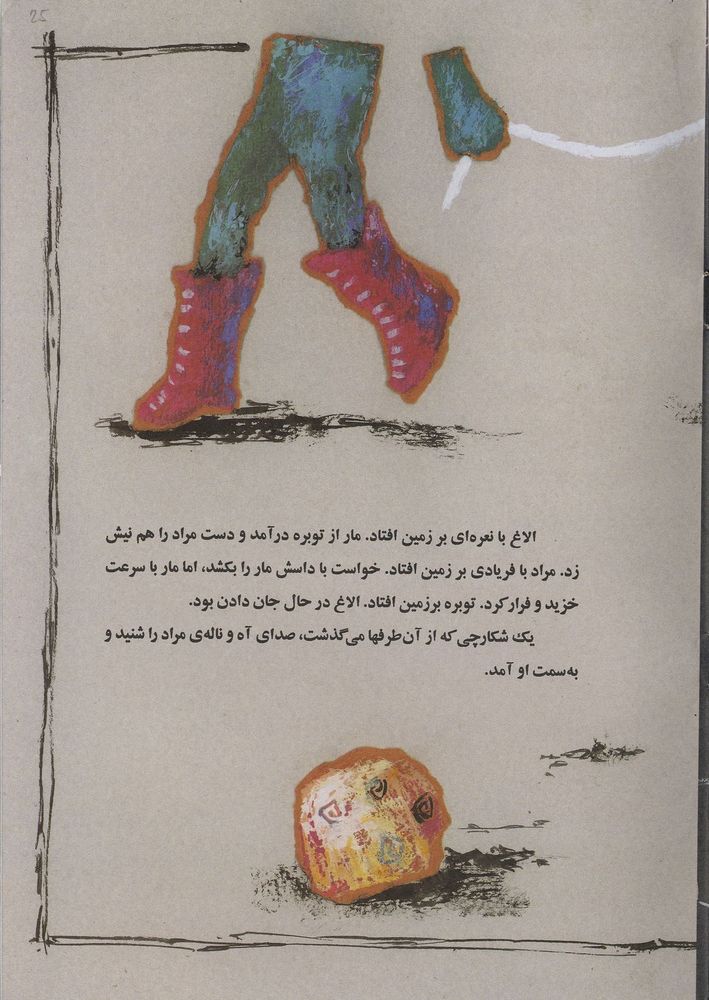 25
الاغ با نعره‌ای بر زمین افتاد. مار از توبره درآمد و دست مراد را هم نیش
زد. مراد با فریادی بر زمین افتاد. خواست با داسش مار را بکشد، اما مار با سرعت
خزید و فرار کرد. توبره برزمین افتاد. الاغ در حال جان دادن بود.
یک شکارچی که از آن‌طرفها می‌گذشت، صدای آه و ناله‌ی مراد را شنید و
به‌سمت او آمد.